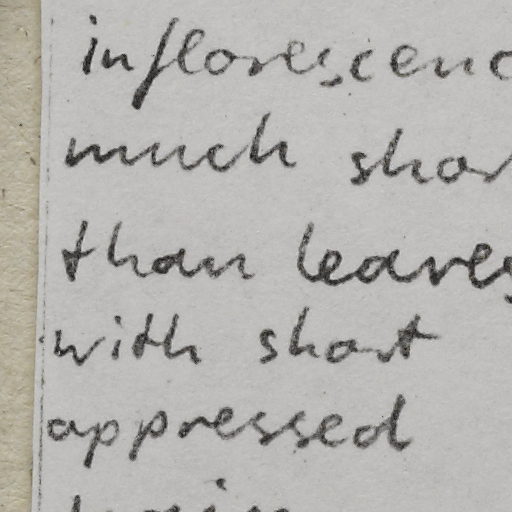 inflorescenc
much shor
than leaves
with short
appressed